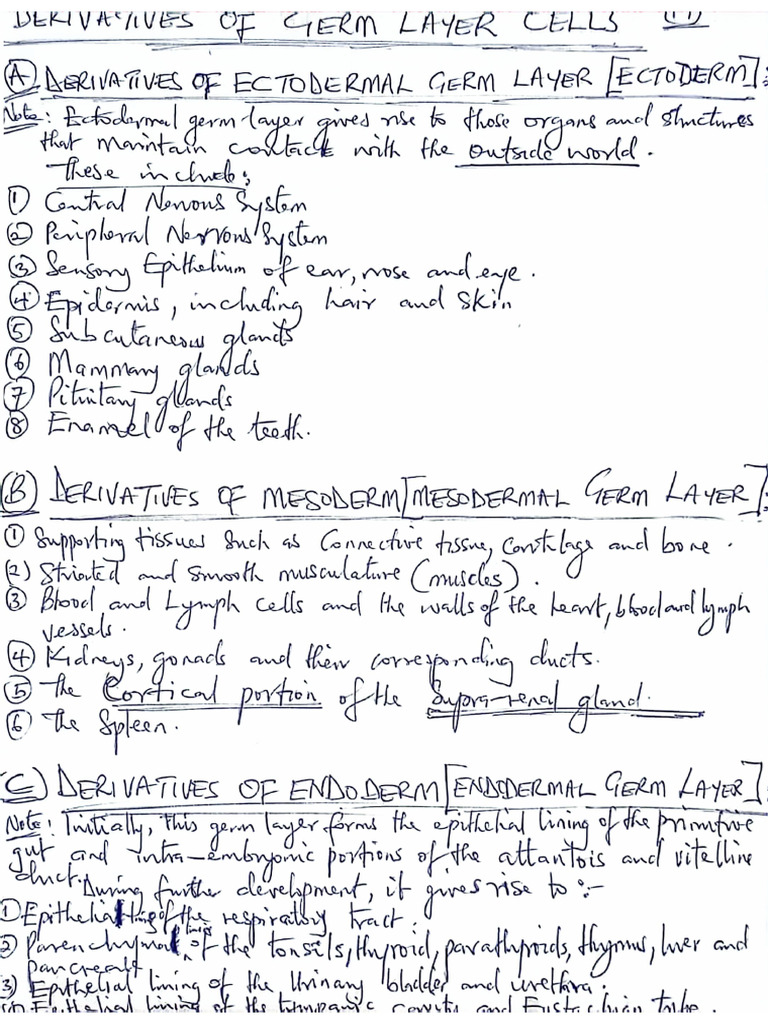 DERIVATIVES OF GERM LAYER CELLS (11)
(A) DERIVATIVES OF ECTODERMAL GERM LAYER [ECTODERM]:
Note: Ectodermal germ layer gives rise to those organs and structures
that maintain contact with the outside world.
These include:
① Central Nervous System
② Peripheral Nervous System
③ Sensory Epithelium of ear, nose and eye.
④ Epidermis, including hair and skin
⑤ Subcutaneous glands
⑥ Mammary glands
⑦ Pituitary glands
⑧ Enamel of the teeth.
(B) DERIVATIVES OF MESODERM [MESODERMAL GERM LAYER]:
① Supporting tissues such as Connective tissue, Cartilage and bone.
(2) Striated and smooth musculature (muscles).
③ Blood and Lymph cells and the walls of the heart, blood and lymph
vessels.
④ Kidneys, gonads and their corresponding ducts.
⑤ The Cortical portion of the Supra-renal gland.
⑥ The Spleen.
(C) DERIVATIVES OF ENDODERM [ENDODERMAL GERM LAYER]:
Note: Initially, this germ layer forms the epithelial lining of the primitive
gut and intra-embryonic portions of the attantois and vitelline
duct. During further development, it gives rise to:-
① Epithelial lining of the respiratory tract.
② Parenchyma of the tonsils, thyroid, parathyroids, thymus, liver and
pancreas
3) Epithelial lining of the Urinary bladder and urethra.
Epithelial lining of the tympanic cavity and Eustachian tube.